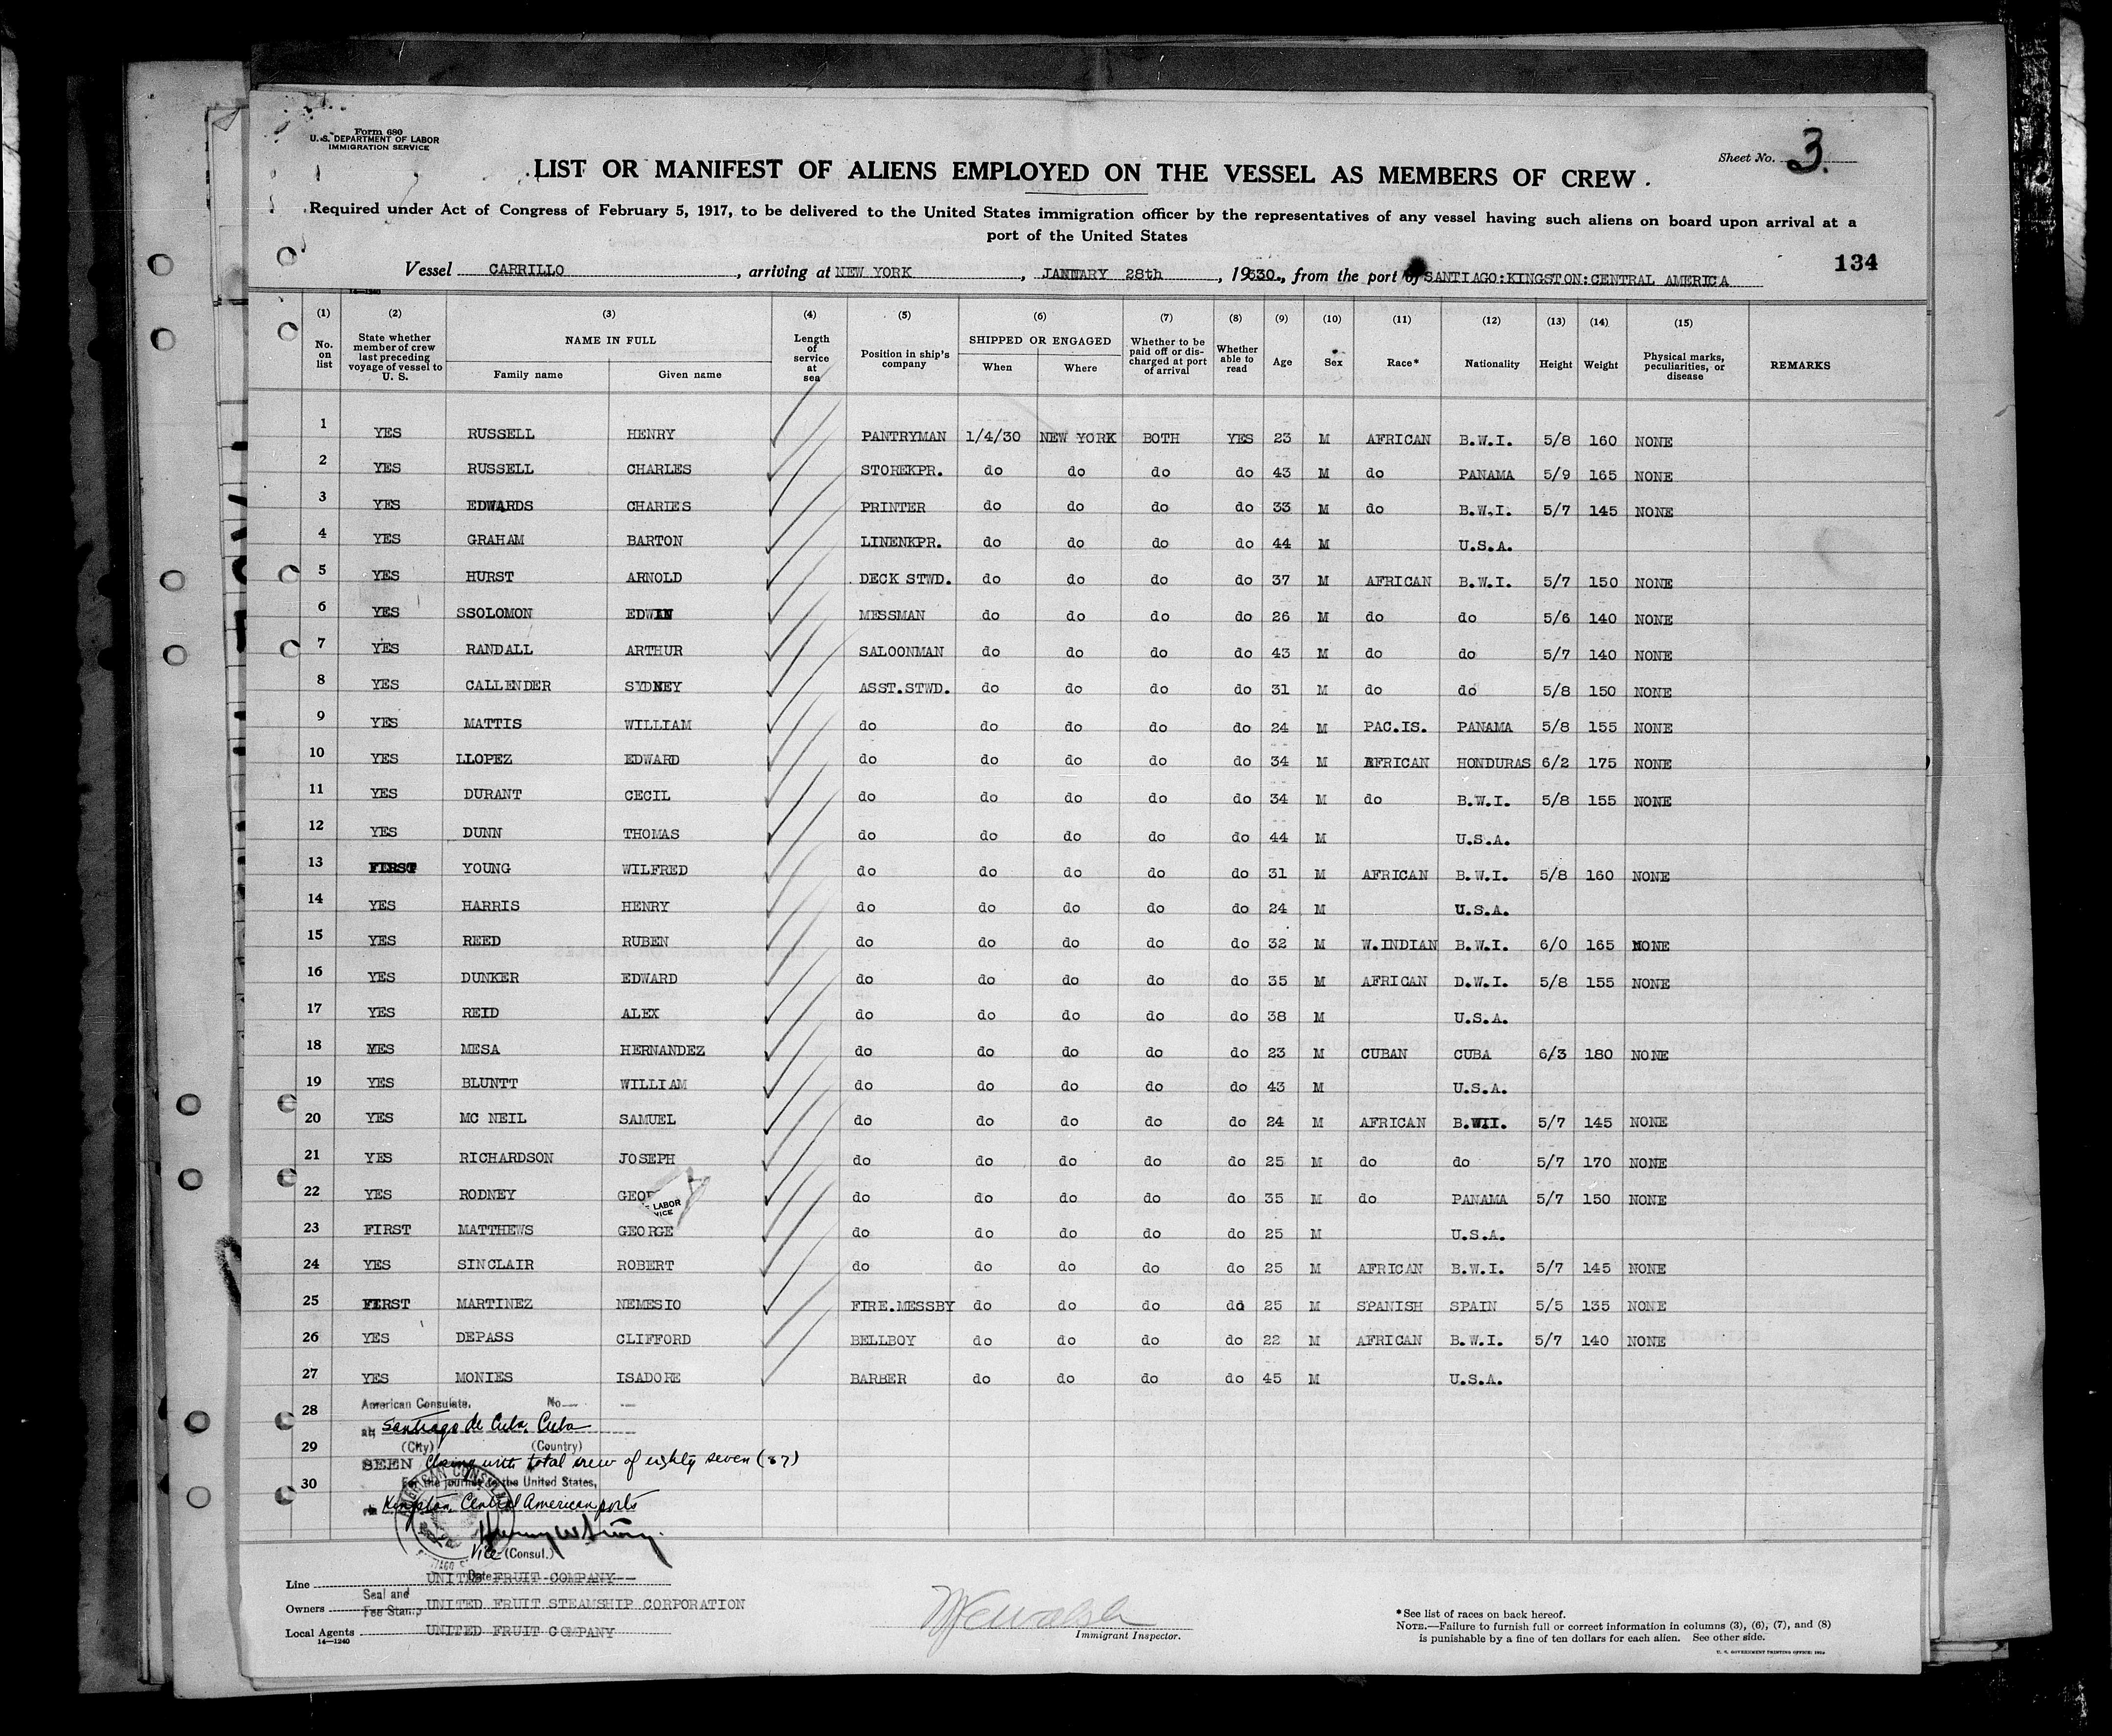 Form 680
U. S. DEPARTMENT OF LABOR
IMMIGRATION SERVICE
Sheet No. 3.
LIST OR MANIFEST OF ALIENS EMPLOYED ON THE VESSEL AS MEMBERS OF CREW
Required under Act of Congress of February 5, 1917, to be delivered to the United States immigration officer by the representatives of any vessel having such aliens on board upon arrival at a
port of the United States
Vessel CARRILLO, arriving at NEW YORK, JANUARY 28th, 1930., from the port of SANTIAGO:KINGSTON:CENTRAL AMERICA
134
14—1240
(1) (2) (3) (4) (5) (6) (7) (8) (9) (10) (11) (12) (13) (14) (15)
No. on list
State whether member of crew last preceding voyage of vessel to U. S.
NAME IN FULL
Family name
Given name
Length of service at sea
Position in ship's company
SHIPPED OR ENGAGED
When
Where
Whether to be paid off or discharged at port of arrival
Whether able to read
Age
Sex
Race*
Nationality
Height
Weight
Physical marks, peculiarities, or disease
REMARKS
1 YES RUSSELL HENRY PANTRYMAN 1/4/30 NEW YORK BOTH YES 23 M AFRICAN B.W.I. 5/8 160 NONE
2 YES RUSSELL CHARLES STOREKPR. do do do do 43 M do PANAMA 5/9 165 NONE
3 YES EDWARDS CHARLES PRINTER do do do do 33 M do B.W.I. 5/7 145 NONE
4 YES GRAHAM BARTON LINENKPR. do do do do 44 M U.S.A.
5 YES HURST ARNOLD DECK STWD. do do do do 37 M AFRICAN B.W.I. 5/7 150 NONE
6 YES SSOLOMON EDWIN MESSMAN do do do do 26 M do do 5/6 140 NONE
7 YES RANDALL ARTHUR SALOONMAN do do do do 43 M do do 5/7 140 NONE
8 YES CALLENDER SYDNEY ASST.STWD. do do do do 31 M do do 5/8 150 NONE
9 YES MATTIS WILLIAM do do do do do 24 M PAC.IS. PANAMA 5/8 155 NONE
10 YES LLOPEZ EDWARD do do do do do 34 M AFRICAN HONDURAS 6/2 175 NONE
11 YES DURANT CECIL do do do do do 34 M do B.W.I. 5/8 155 NONE
12 YES DUNN THOMAS do do do do do 44 M U.S.A.
13 FIRST YOUNG WILFRED do do do do do 31 M AFRICAN B.W.I. 5/8 160 NONE
14 YES HARRIS HENRY do do do do do 24 M U.S.A.
15 YES REED RUBEN do do do do do 32 M W.INDIAN B.W.I. 6/0 165 NONE
16 YES DUNKER EDWARD do do do do do 35 M AFRICAN D.W.I. 5/8 155 NONE
17 YES REID ALEX do do do do do 38 M U.S.A.
18 YES MESA HERNANDEZ do do do do do 23 M CUBAN CUBA 6/3 180 NONE
19 YES BLUNTT WILLIAM do do do do do 43 M U.S.A.
20 YES MC NEIL SAMUEL do do do do do 24 M AFRICAN B.WII. 5/7 145 NONE
21 YES RICHARDSON JOSEPH do do do do do 25 M do do 5/7 170 NONE
22 YES RODNEY GEOR do do do do do 35 M do PANAMA 5/7 150 NONE
LABOR
VICE
23 FIRST MATTHEWS GEORGE do do do do do 25 M U.S.A.
24 YES SINCLAIR ROBERT do do do do do 25 M AFRICAN B.W.I. 5/7 145 NONE
25 FIRST MARTINEZ NEMESIO FIRE.MESSBY do do do do 25 M SPANISH SPAIN 5/5 135 NONE
26 YES DEPASS CLIFFORD BELLBOY do do do do 22 M AFRICAN B.W.I. 5/7 140 NONE
27 YES MONIES ISADORE BARBER do do do do 45 M U.S.A.
28
29
30
American Consulate, No
at Santiago de Cuba, Cuba
(City) (Country)
SEEN Closing with total crew of eighty seven (87)
For the journey to the United States,
Kingston, Central American ports
AMERICAN CONSUL
Vice (Consul.)
Date
Line UNITED FRUIT COMPANY
Seal and
Fee Stamp
Owners UNITED FRUIT STEAMSHIP CORPORATION
Local Agents UNITED FRUIT COMPANY
14—1240
Immigrant Inspector.
*See list of races on back hereof.
NOTE.—Failure to furnish full or correct information in columns (3), (6), (7), and (8)
is punishable by a fine of ten dollars for each alien. See other side.
U. S. GOVERNMENT PRINTING OFFICE: